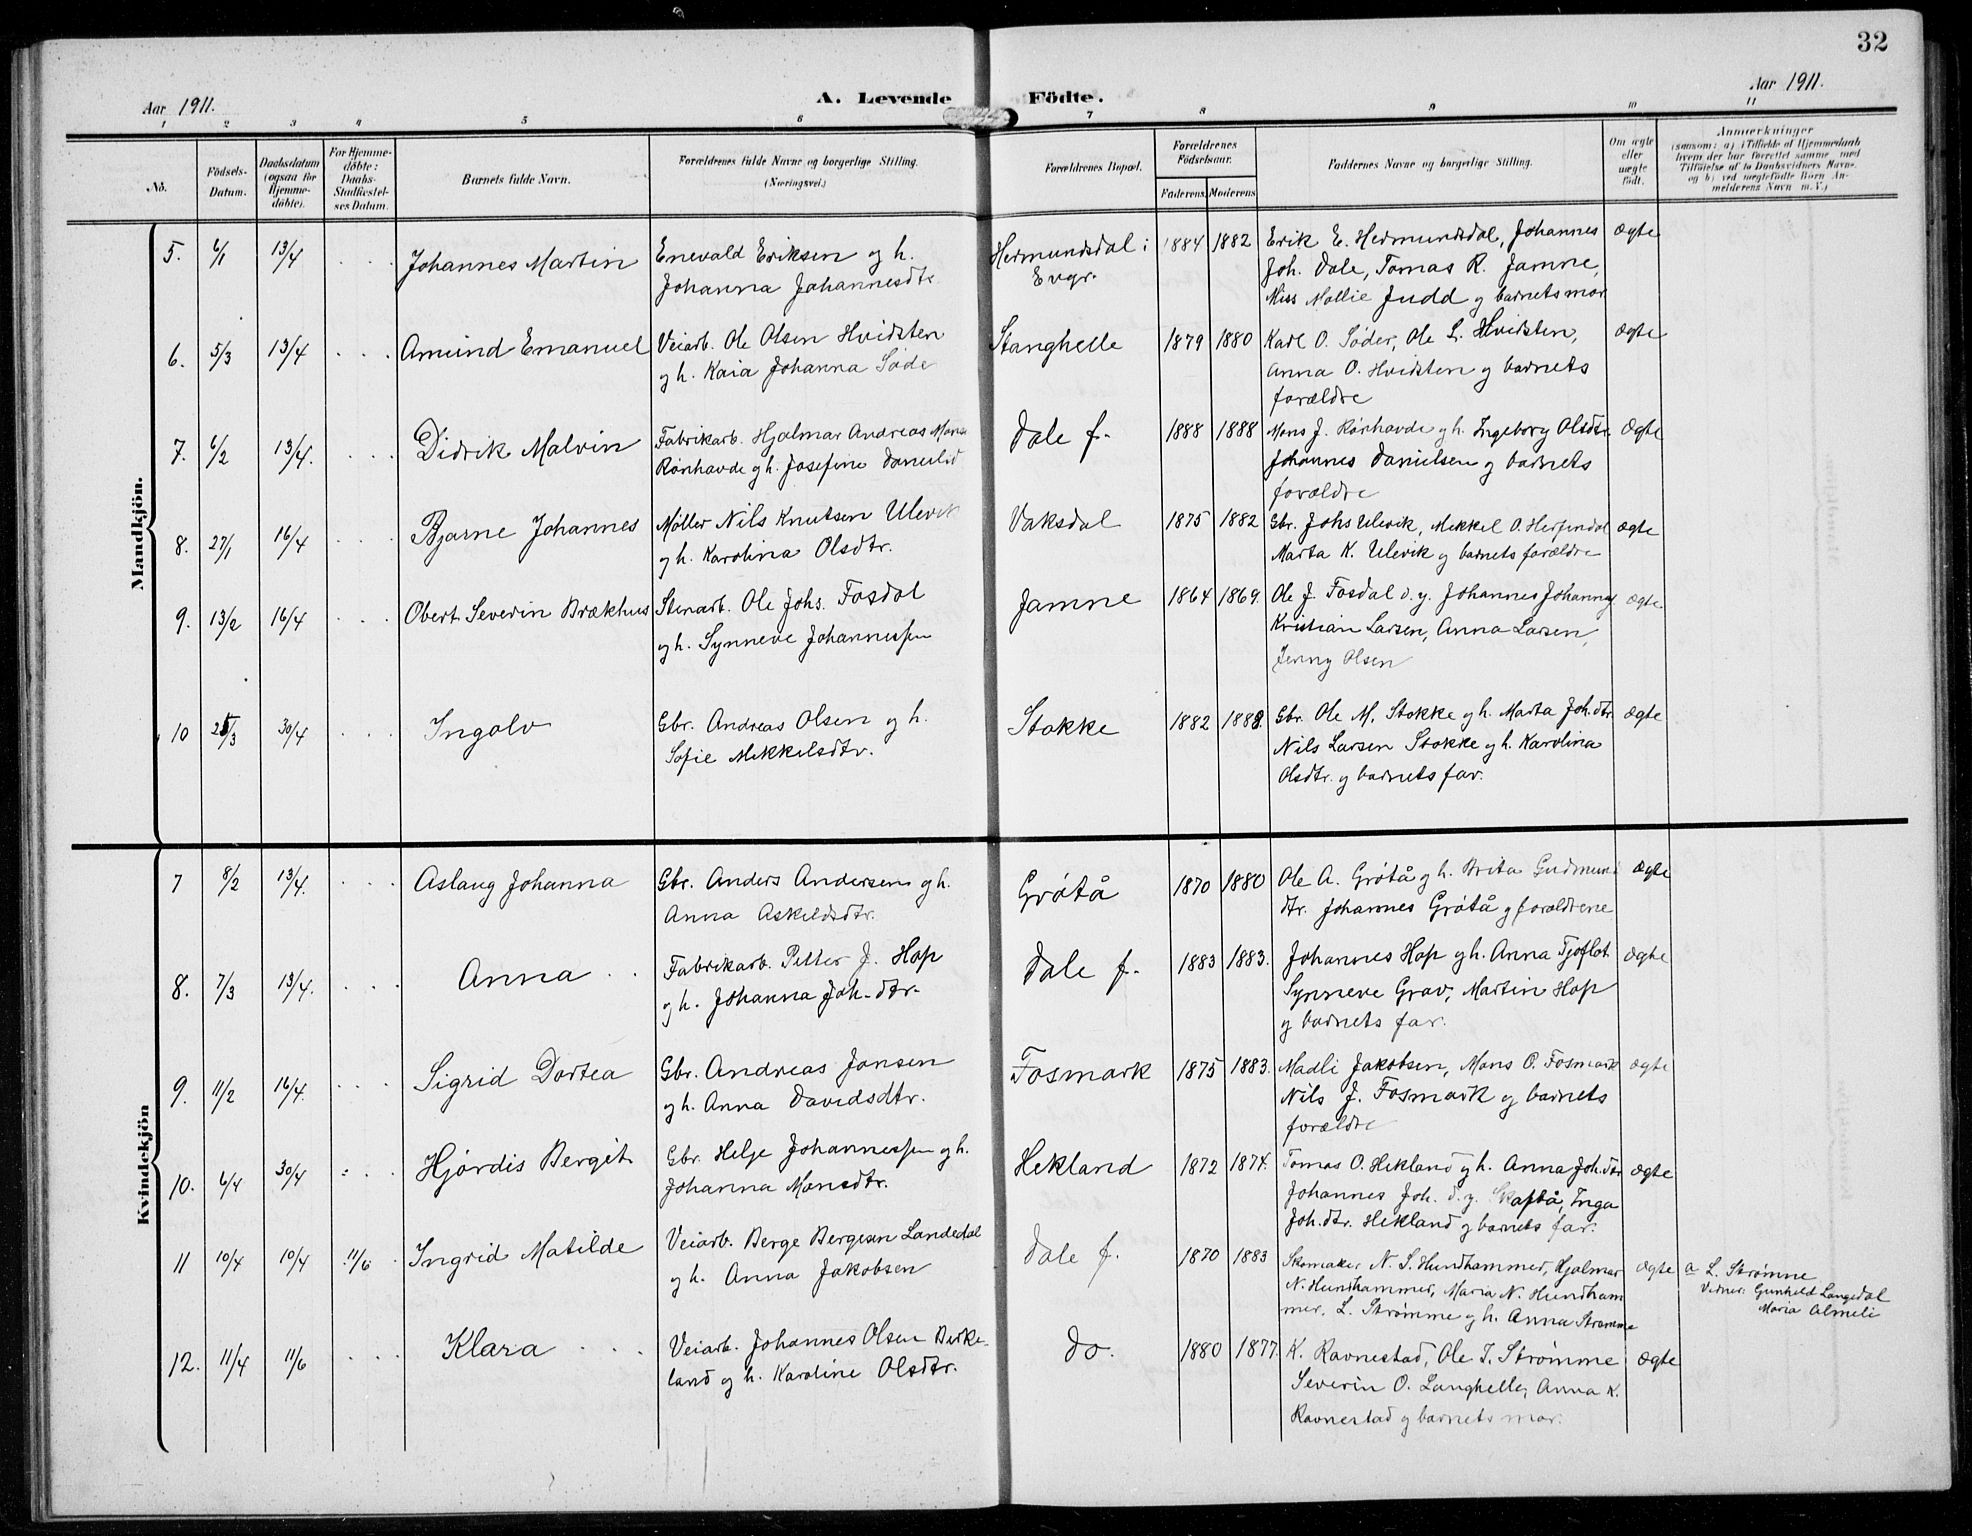 32
Aar 1911.
A. Levende Födte.
Aar 1911.
1 2 3 4 5 6 7 8 9 10 11
No.
Födsels-Datum.
Daabsdatum (ogsaa for Hjemme-döbte).
For Hjemme-döbte: Daabs-Stadfæstel-ses Datum.
Barnets fulde Navn.
Forældrenes fulde Navne og borgerlige Stilling. (Næringsvei.)
Forældrenes Bopæl.
Forældrenes Födselsaar.
Faderens. Moderens.
Faddernes Navne og borgerlige Stilling.
Om ægte eller uægte födt.
Anmærkninger
(saasom: a) i Tilfælde af Hjemmedaab hvem der har forrettet samme med Tilföielse af to Daabsvidners Navne, og b) ved uægtefödte Börn Anmelderens Navn m. V.)
Mandkjön.
5. 6/1 13/4 Johannes Martin
Enevald Eriksen og h.
Johanna Johannesdtr.
Hermundsdal i
Evgr.
1884 1882
Erik E. Hermundsdal, Johannes
Joh. Dale, Tomas R. Jamne,
Miss Mollie Judd og barnets mor
ægte
6. 5/3 13/4 Amund Emanuel
Veiarb. Ole Olsen Hvidsten
og h. Kaia Johanna Søde
Stanghelle
1879 1880
Karl O. Søder, Ole L. Hvidsten,
Anna O. Hvidsten og barnets
forældre
ægte
7. 6/2 13/4. Didrik Malvin
Fabrikarb. Hjalmar Andreas Mons
Rørhavde og h. Josefine Danielsd
Dale f.
1888 1888
Mons J. Rørhavde og h. Ingeborg Olsdtr.
Johannes Danielsen og barnets
forældre
ægte
8. 27/1 16/4 Bjarne Johannes
Møller Nils Knutsen Ulevik
og h. Karolina Olsdtr.
Vaksdal
1875 1882
Gbr. Johs Ulevik, Mikkel O. Herfindal
Marta K. Ulevik og barnets forældre
ægte
9. 13/2 16/4 Obert Severin Brækhus
Stenarb. Ole Johs. Fosdal
og h. Synneve Johannessen
Jamne
1864 1869.
Ole J. Fosdal d. y. Johannes Johannes
Kristian Larsen, Anna Larsen,
Jenny Olsen
ægte
10 25/3 30/4 Ingolv
Gbr. Andreas Olsen og h.
Sofie Mikkelsdtr.
Stokke
1882 1888.
Gbr. Ole M. Stokke og h. Marta Joh.dtr
Nils Larsen Stokke og h. Karolina
Olsdtr. og barnets far.
ægte
Kvindekjön
7 8/2 13/4. Aslaug Johanna
Gbr. Anders Andersen og h.
Anna Askildsdtr.
Grøtå
1870 1880
Ole A. Grøtå og h. Brita Gudmund
dtr. Johannes Grøtå og forældrene
ægte
8. 7/3 13/4. Anna
Fabrikarb. Petter J. Hop
og h. Johanna Joh.dtr.
Dale f.
1883 1883.
Johannes Hop og h. Anna Tjoflot
Synneve Grav, Martin Hop
og barnets far.
ægte
9. 11/2 16/4. Sigrid Dortea
Gbr. Andreas Jonsen
og h. Anna Davidsdtr.
Fosmark
1875 1883.
Madli Jakobsen, Mons O. Fosmark
Nils J. Fosmark og barnets
forældre
ægte
10. 6/4 30/4 Hjørdis Bergit
Gbr. Helje Johannessen og h.
Johanna Monsdtr.
Hekland
1872 1874.
Tomas O. Hekland og h. Anna Joh.dtr
Johannes Joh. d. y. Skaftå, Inga
Joh.dtr. Hekland og barnets far.
ægte
11 10/4 10/4 11/6 Ingrid Matilde
Veiarb. Berge Bergesen Landedal
og h. Anna Jakobsen
Dale f.
1870 1883
Skomaker N. S. Hundhammer, Hjalmar
N. Hundhammer, Maria N. Hundham
mer, L. Strømme og h. Anna Strømme
ægte
a L. Strømme
Vidner: Gunhild Langedal
Maria Almeli
12. 11/4 11/6 Klara
Veiarb. Johannes Olsen Birke-
land og h. Karoline Olsdtr.
Do.
1880 1877.
K. Ravnestad, Ole I. Strømme
Severin O. Langhelle, Anna K.
Ravnestad og barnets mor.
ægte